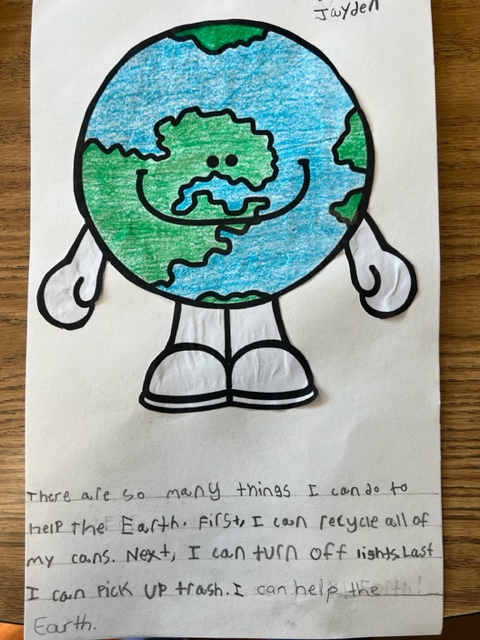 Jayden
There are so many things I can do to
help the Earth. First, I can recycle all of
my cans. Next, I can turn off lights. Last
I can pick up trash. I can help the
Earth.